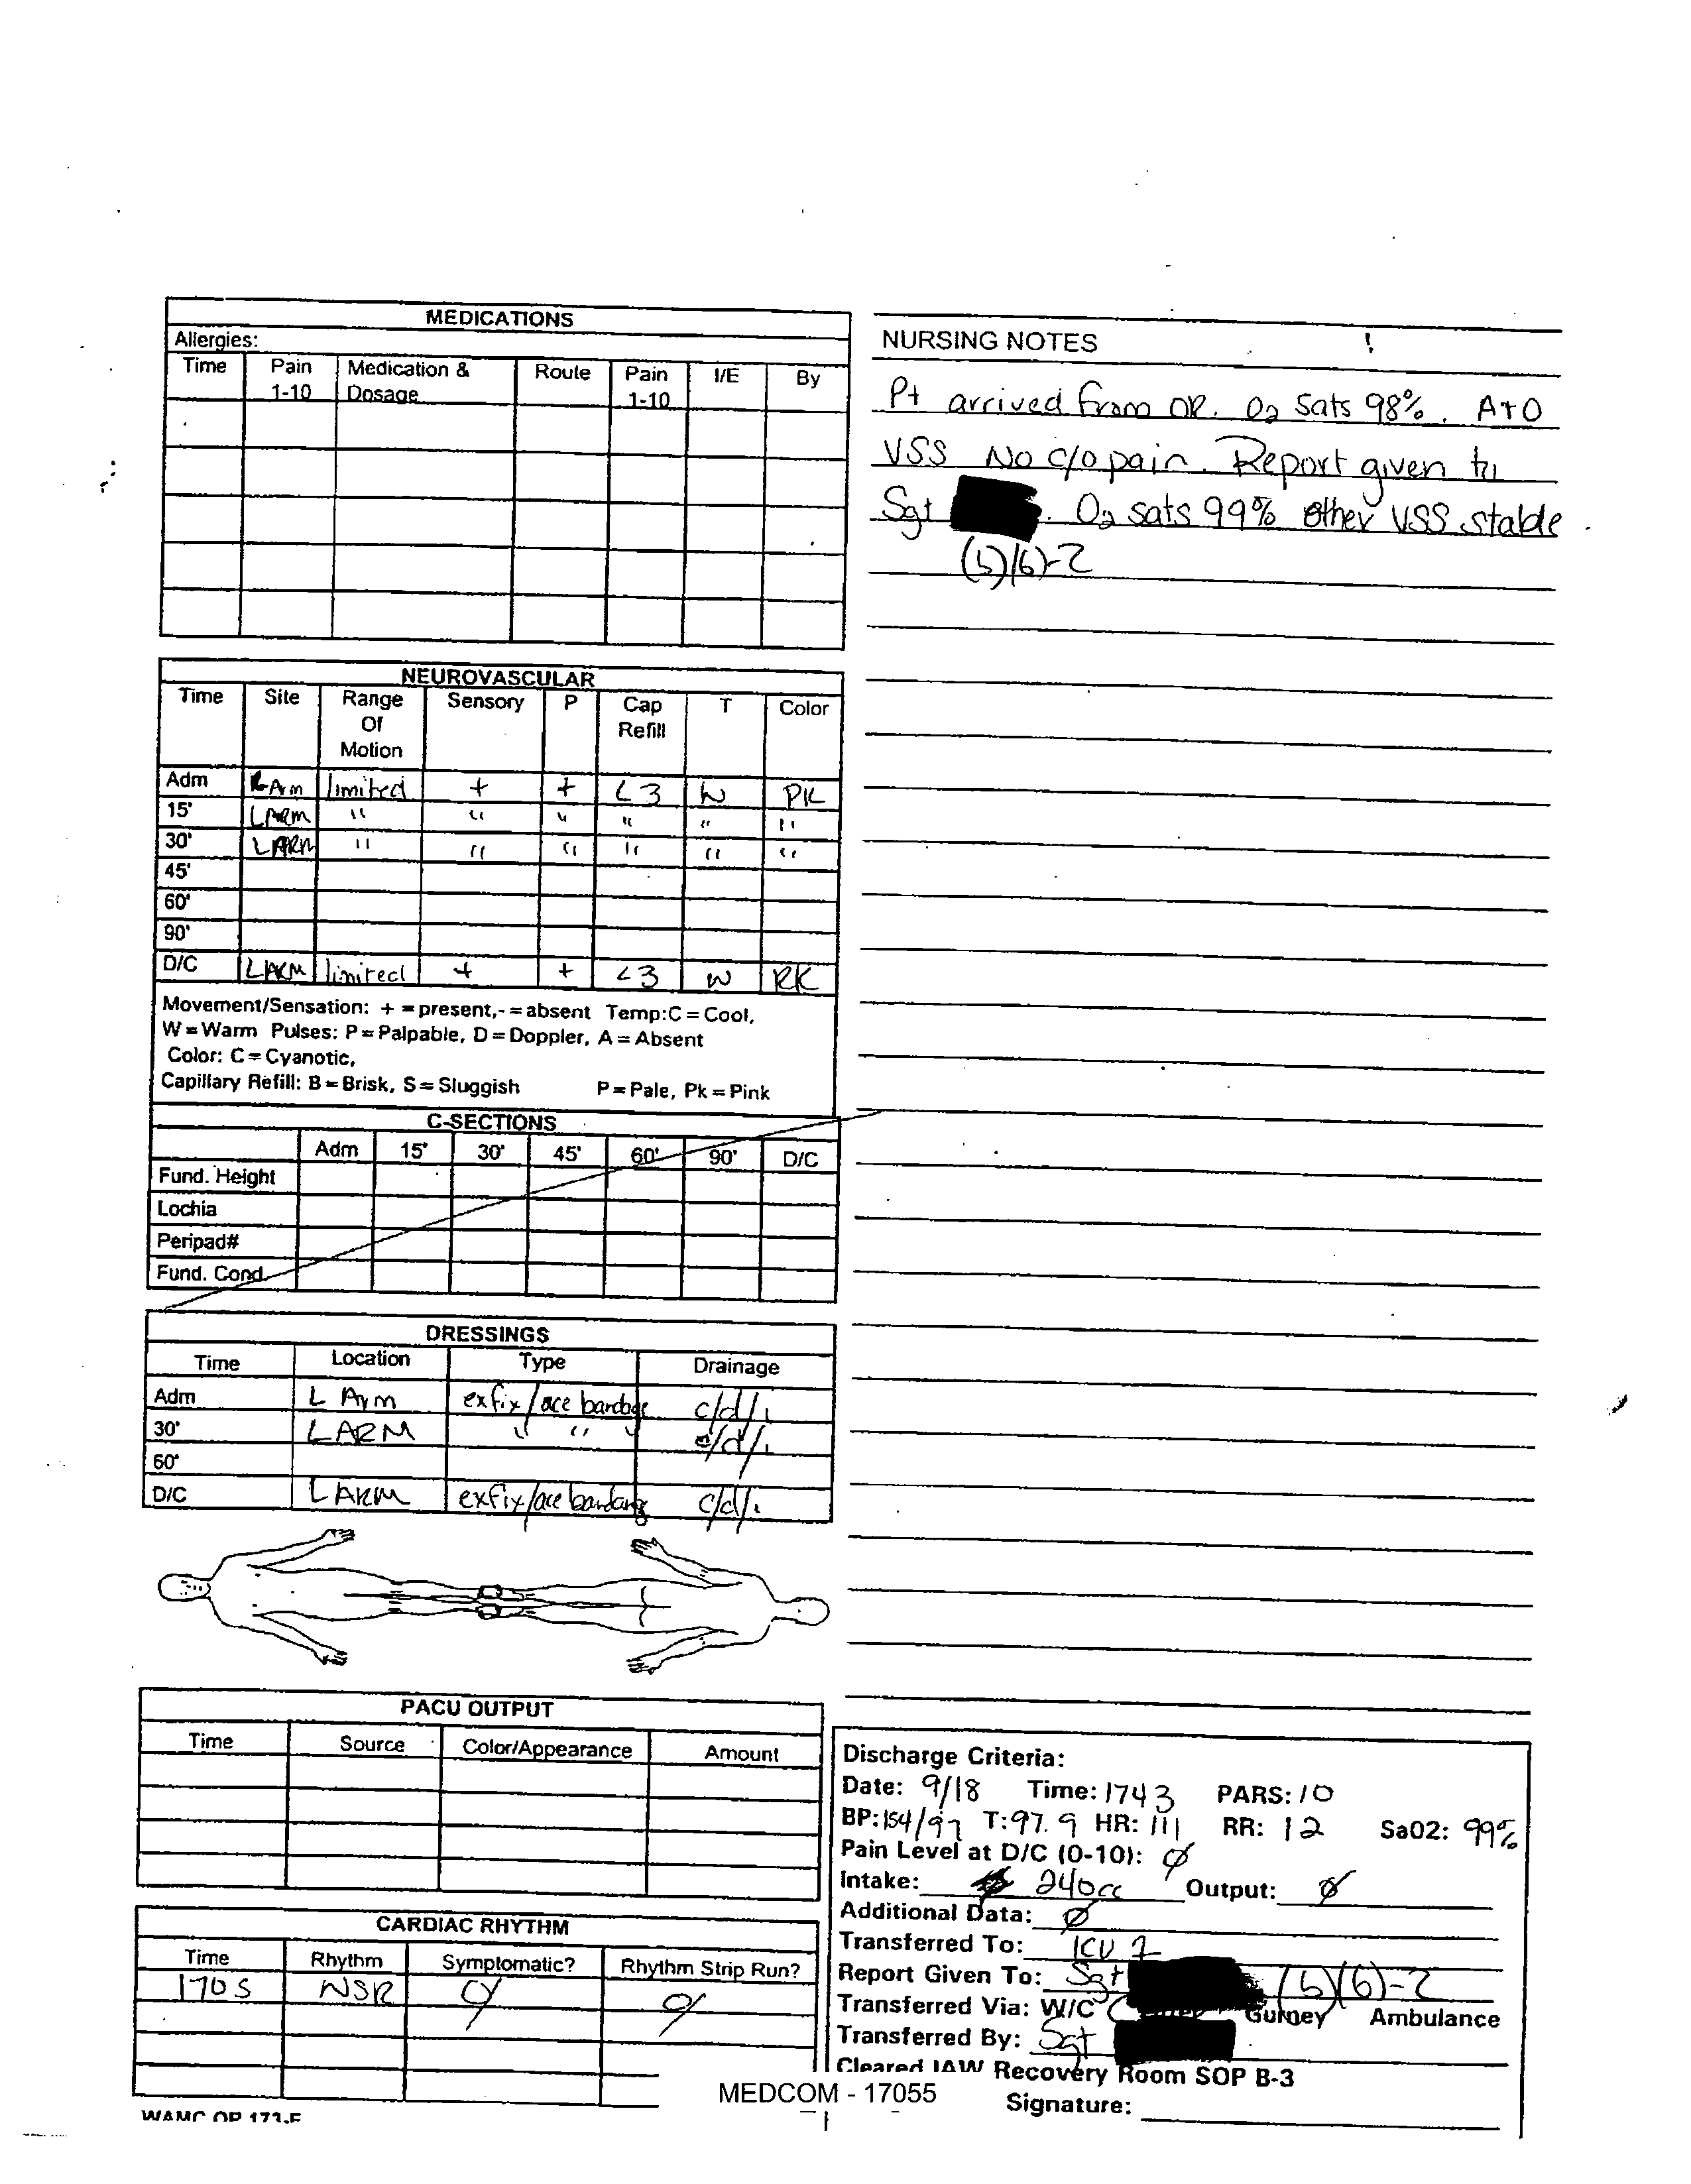 MEDICATIONS
Allergies:
Time Pain 1-10 Medication & Dosage Route Pain 1-10 I/E By
NEUROVASCULAR
Time Site Range Of Motion Sensory P Cap Refill T Color
Adm LArm limited + + <3 W PK
15' LARM " " " " " "
30' LARM " " " " " "
45'
60'
90'
D/C LARM limited + + <3 W PK
Movement/Sensation: + = present,- = absent Temp:C = Cool,
W = Warm Pulses: P = Palpable, D = Doppler, A = Absent
Color: C = Cyanotic,
Capillary Refill: B = Brisk, S = Sluggish P = Pale, Pk = Pink
C-SECTIONS
Adm 15' 30' 45' 60' 90' D/C
Fund. Height
Lochia
Peripad#
Fund. Cond.
DRESSINGS
Time Location Type Drainage
Adm L Arm exfix/ace bandage c/d/i
30' LARM " " " c/d/i
60'
D/C LARM exfix/ace bandang c/d/i
PACU OUTPUT
Time Source Color/Appearance Amount
CARDIAC RHYTHM
Time Rhythm Symptomatic? Rhythm Strip Run?
1705 NSR Ø Ø
WAMC OP 173-E
NURSING NOTES
Pt arrived from OR. O2 Sats 98%. A+O
VSS No c/o pain. Report given to
Sgt . O2 sats 99% other VSS stable
(b)(6)-2
Discharge Criteria:
Date: 9/18 Time: 1743 PARS: 10
BP: 154/97 T: 97.9 HR: 111 RR: 12 Sa02: 99%
Pain Level at D/C (0-10): Ø
Intake: 240cc Output: Ø
Additional Data: Ø
Transferred To: ICU 1
Report Given To: Sgt (b)(6)-2
Transferred Via: W/C Gurney Ambulance
Transferred By: Sgt
Cleared IAW Recovery Room SOP B-3
Signature:
MEDCOM - 17055